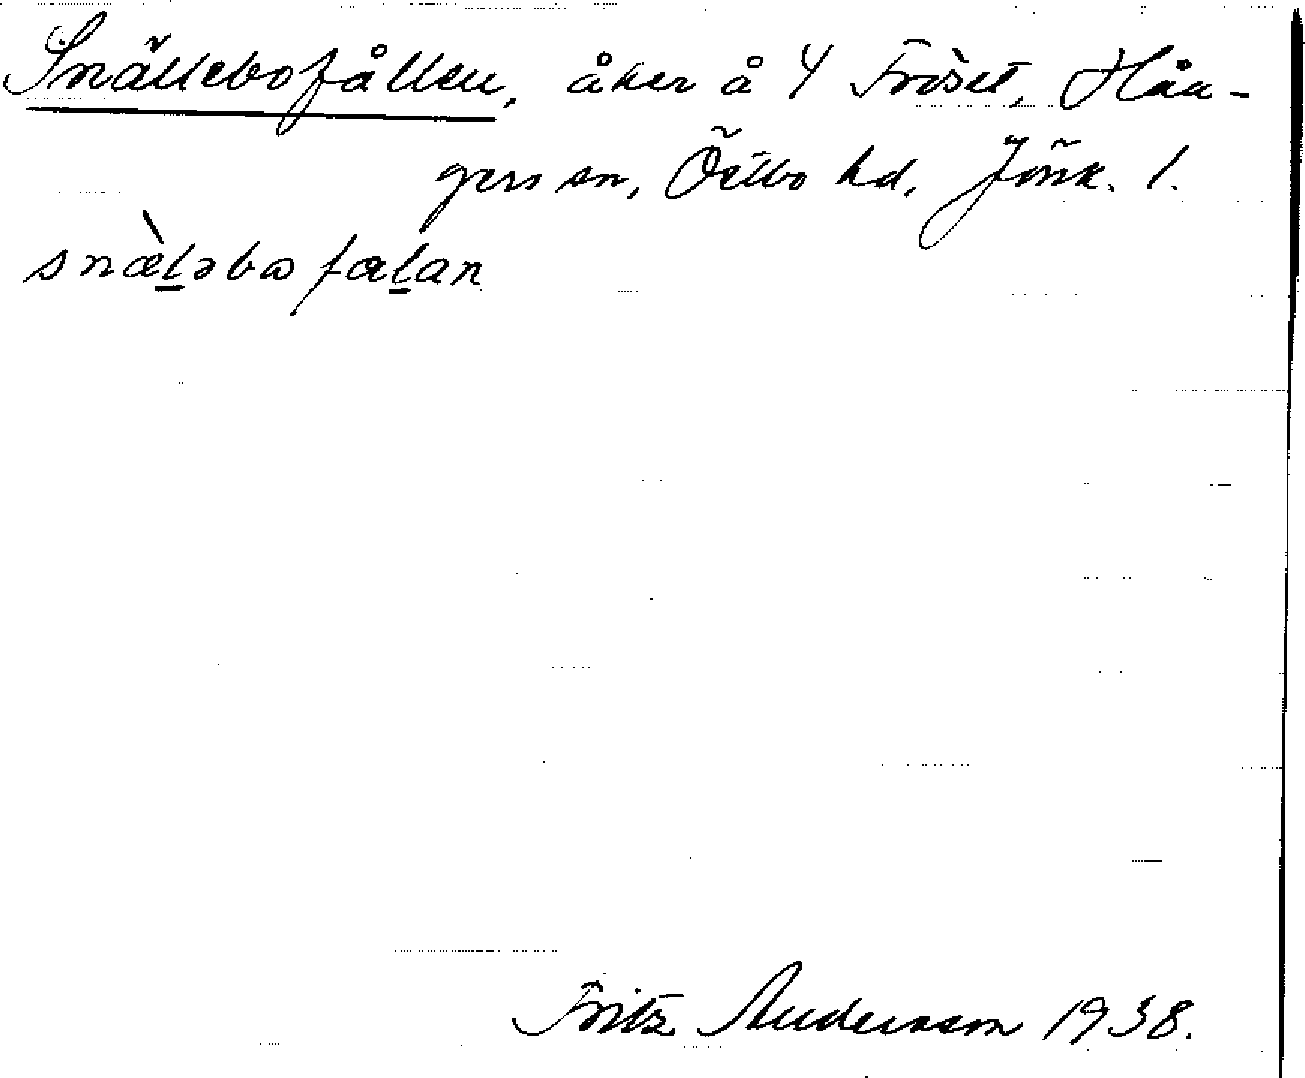 Snällebofållen, åker å 4 Fröset, Hån-
gers sn, Östbo hd, Jönk. l.
snæ̀l̲əbωfαl̲an
Fritz Andersson 1938.